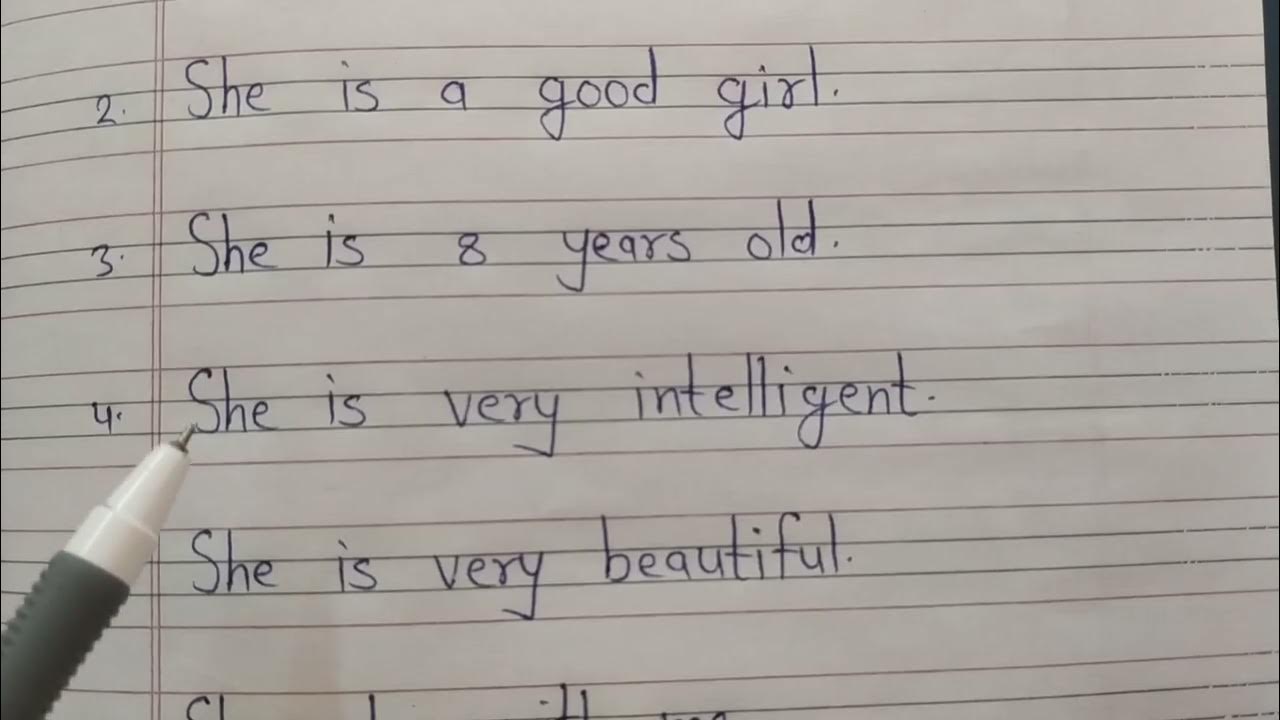 2. She is a good girl.
3. She is 8 years old.
4. She is very intelligent.
She is very beautiful.